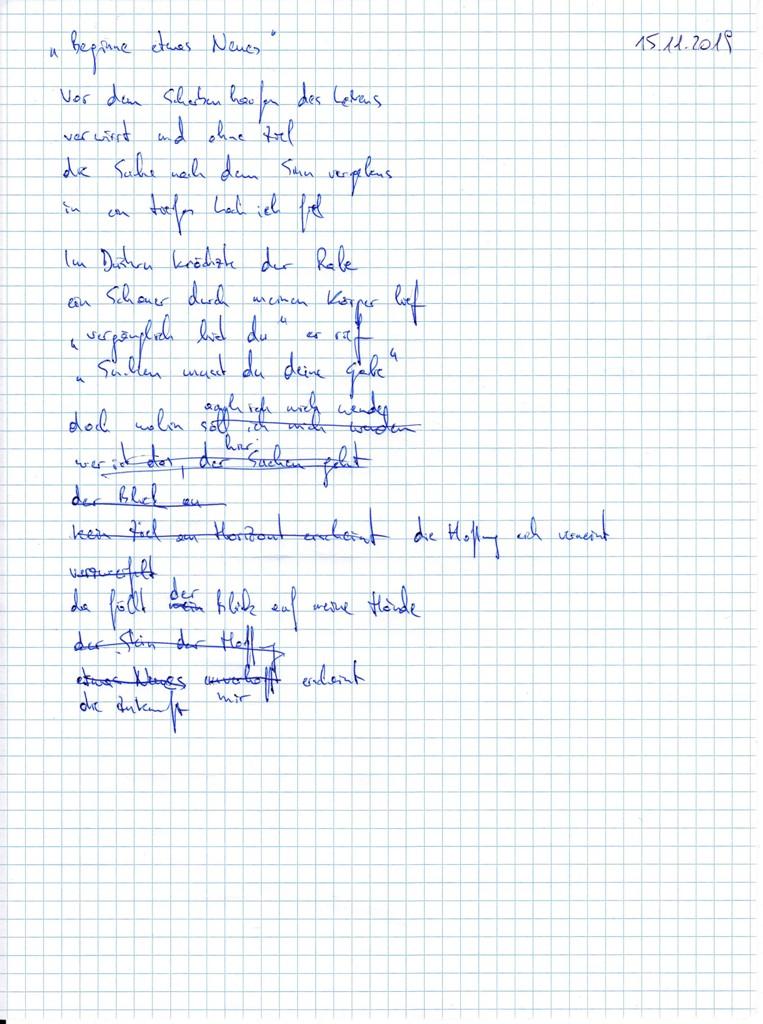 „Beginne etwas Neues“ 15.11.2019
Vor dem Scherbenhaufen des Lebens
verwirrt und ohne Ziel
die Suche nach dem Sinn vergebens
in ein tiefes Loch ich fiel
Im Düstern krächzte der Rabe
ein Schauer durch meinen Körper lief
„vergänglich bist du“ er rief
„Suchen musst du deine Gabe“
ich mich wende
doch wohin soll ich mich wenden
hier
wer ist das, der Suchen geht
der Blick an
kein Ziel am Horizont erscheint die Hoffnung sich verneint
verzweifelt
der
da fällt mein Blick auf meine Hände
der Stein der Hoffng
etwas Neues unverhofft erscheint
die Zukunft mir